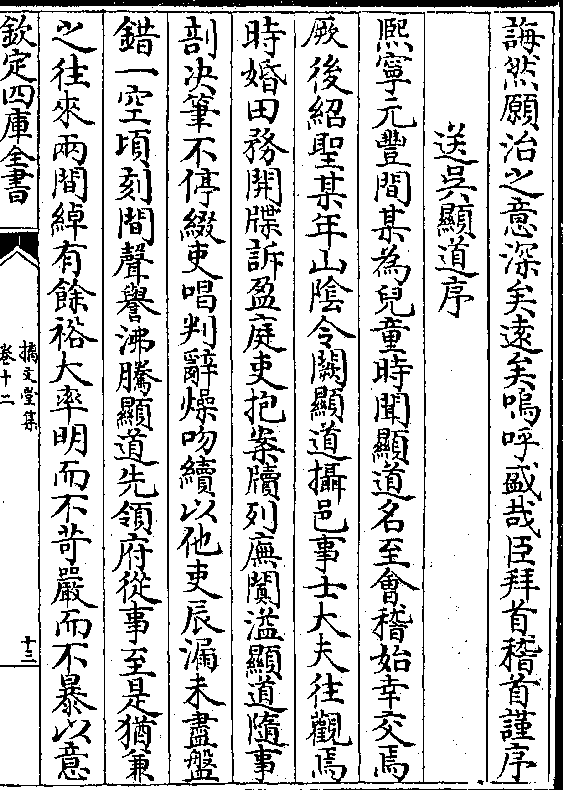 誨然願治之意深矣遠矣嗚呼盛哉臣拜首稽首謹序
送吳顯道序
熙寧元豐間某為兒童時聞顯道名至會稽始幸交焉
厥後紹聖某年山陰令闕顯道攝邑事士大夫往觀焉
時婚田務開牒訴盈庭吏抱案牘列廡闐溢顯道隨事
剖决筆不停綴吏唱判辭燥吻續以他吏辰漏未盡盤
錯一空頃刻間聲譽沸騰顯道先領府從事至是猶兼
之往來兩間綽有餘裕大率明而不苛嚴而不暴以意
欽定四庫全書
摛文堂集
卷十二
十三